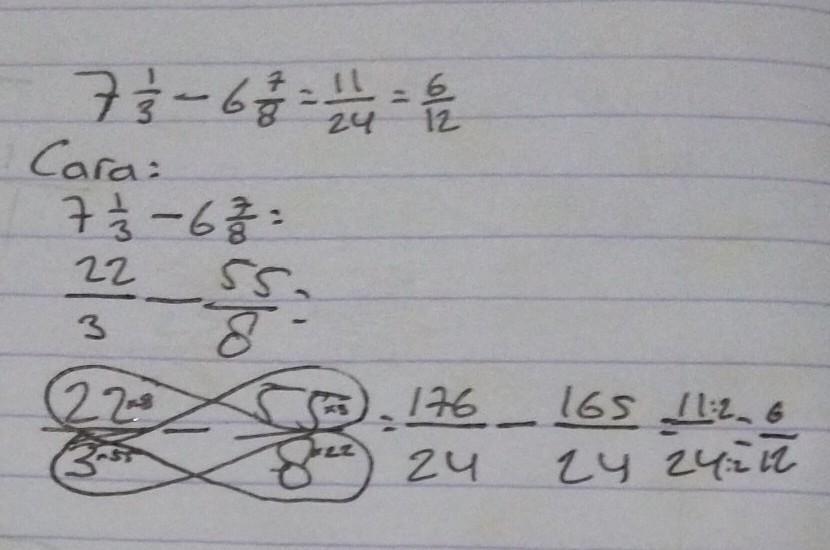 7 1/3 - 6 7/8 = 11/24 = 6/12
Cara:
7 1/3 - 6 7/8 =
22/3 - 55/8 =
22×8/3×55 - 55×3/8×22 = 176/24 - 165/24 = 11:2/24:2 = 6/12